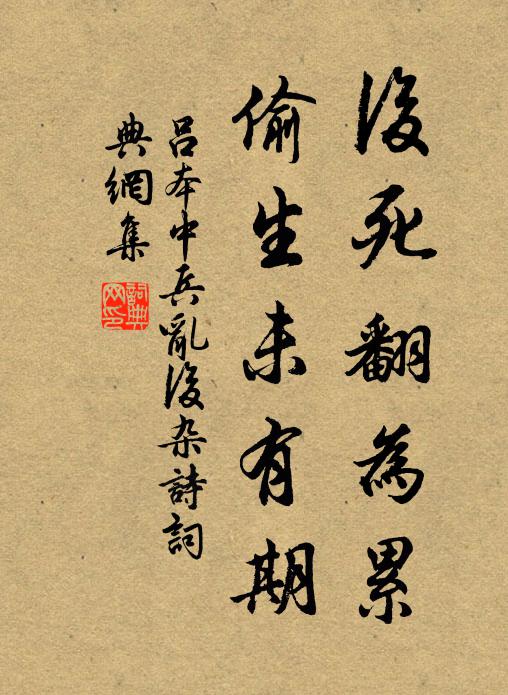 後死翻為累
偷生未有期
呂本中兵亂後杂詩詞
典網集
詞典
网印